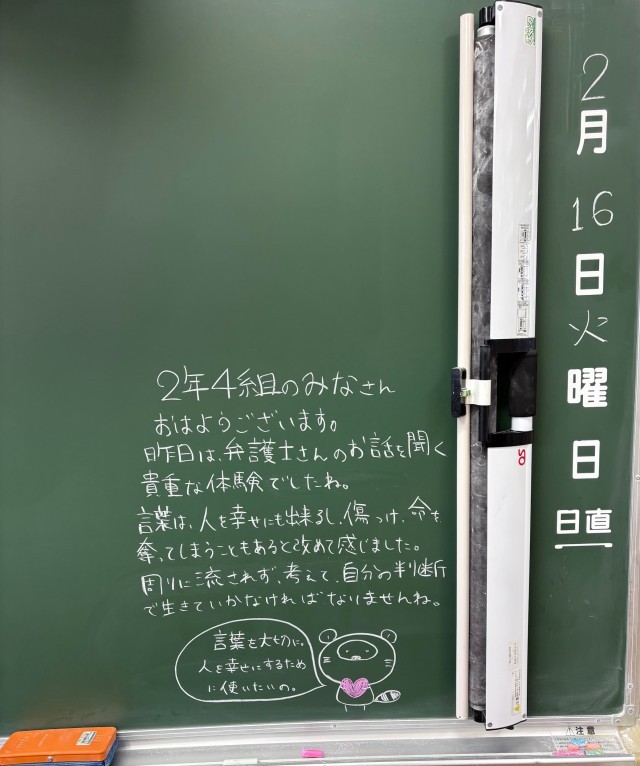 2月16日火曜日
日直
2年4組のみなさん
おはようございます。
昨日は、弁護士さんのお話を聞く
貴重な体験でしたね。
言葉は、人を幸せにも出来るし、傷つけ、命を
奪ってしまうこともあると改めて感じました。
周りに流されず、考えて、自分の判断
で生きていかなければなりませんね。
言葉を大切に。
人を幸せにするため
に使いたいの。
注意